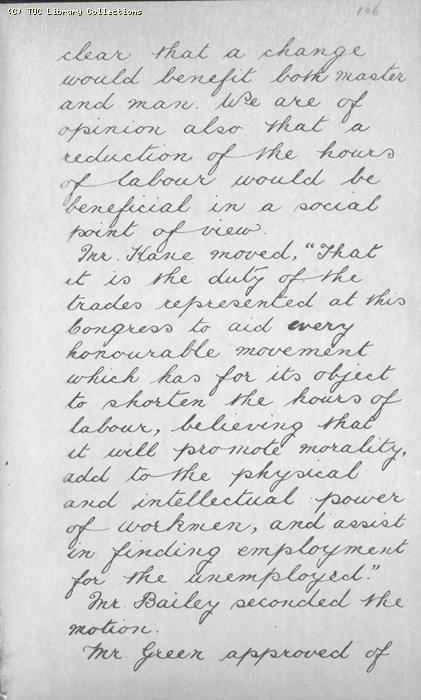 (C) TUC Library Collections
106
clear that a change
would benefit both master
and man. We are of
opinion also that a
reduction of the hours
of labour would be
beneficial in a social
point of view.
Mr. Kane moved, "That
it is the duty of the
trades represented at this
Congress to aid every
honourable movement
which has for its object
to shorten the hours of
labour, believing that
it will promote morality,
add to the physical
and intellectual power
of workmen, and assist
in finding employment
for the unemployed."
Mr. Bailey seconded the
motion.
Mr. Green approved of